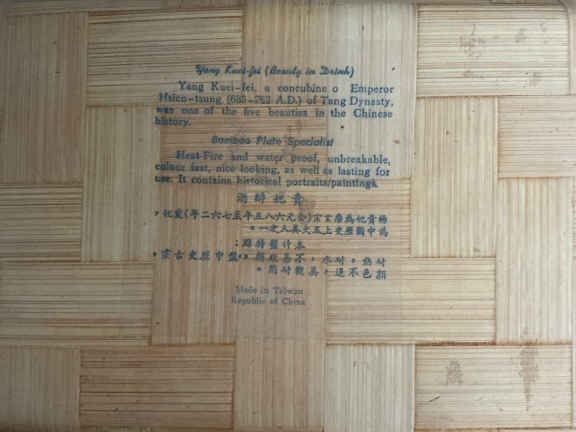 Yang Kuei-fei (Beauty in Drink)
Yang Kuei-fei, a concubine o Emperor
Hsien-tsung (685-762 A.D.) of Tang Dynasty,
was one of the five beauties in the Chinese
history.
Bamboo Plate Specialist
Heat-Fire and water proof, unbreakable,
colour fast, nice looking, as well as lasting for
use. It contains historical portraits/paintings.
酒醉妃貴
，妃愛(年二六七至年五八六元公)宗玄唐為妃貴楊
。一之人美大五上史歷國中為
：點特盤竹本
耐熱。耐水。
顏色不退。美觀耐用。
Made in Taiwan
Republic of China